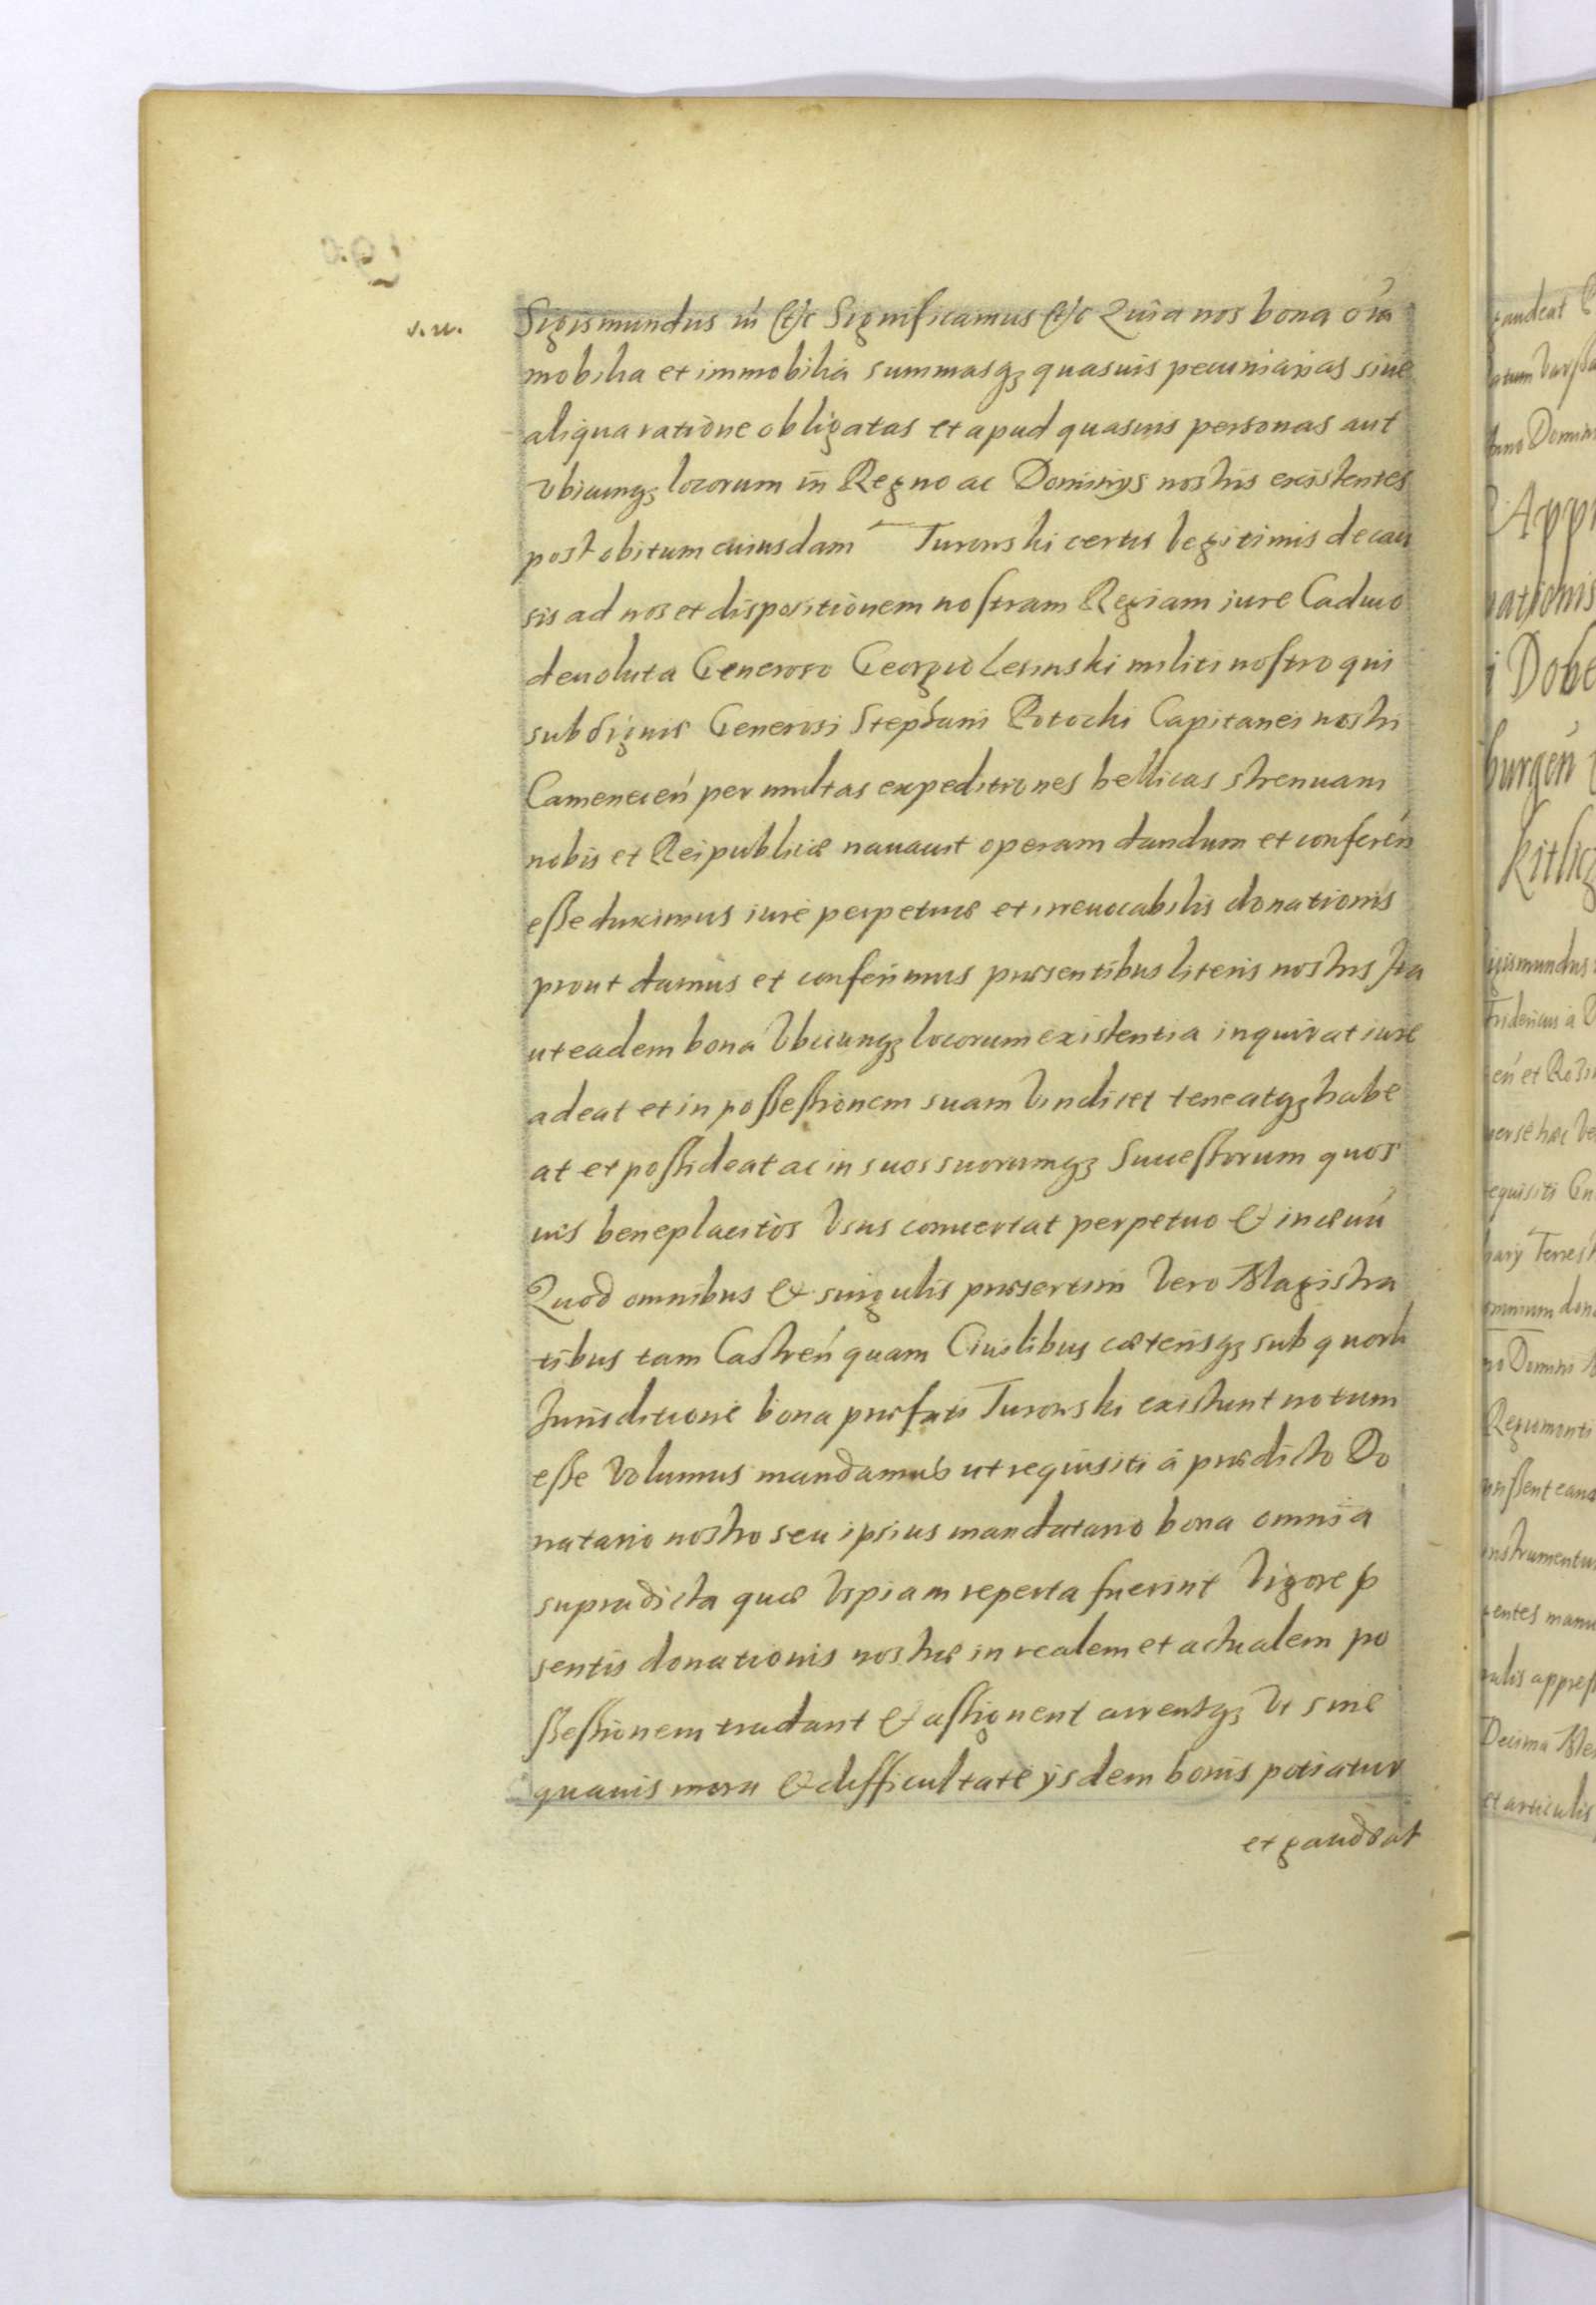 s. n.
Sigismundus iii (et)c Significamus (et)c Quia nos bona o͞ia
mobilia et immobilia summasqȝ quasuis pecuniarias siue
aliqua ratione obligatas et apud quasuis personas aut
Vbicunqȝ locorum in Regno ac Dominijs nostris existentes
post obitum cuiusdam Turowski certis legitimis de cau
sis ad nos et dispositionem nostram Regiam iure Caduco
deuoluta Generoso Georgio Lesinski militi nostro qui
sub signis Generosi Stephani Potocki Capitanei nostri
Camenecen̄ per multas expeditiones bellicas strenuam
nobis et Reipublicæ nauauit operam dandum et conferen̄
eße duximus iure perpetuæ et irreuocabilis donationis
prout damus et conferimus præsentibus literis nostris Ita
ut eadem bona Vbicunqȝ locorum existentia inquirat iure
adeat et in poßeßionem suam Vindicet teneatqȝ habe
at et poßideat ac in suos suorumqȝ Succeßorum quos
uis beneplacitos Vsus conuertat perpetuo & in æuū
Quod omnibus & singulis præsertim Vero Magistra
tibus tam Castren̄ quam Ciuilibus cæterisqȝ sub quorū
Jurisditione bona præfati Turowski existunt notum
eße Volumus mandamus ut requisiti á prædicto Do
natario nostro seu ipsius mandatario bona omnia
supradicta quæ Vspiam reperta fuerint Vigore p̱
sentis donationis nostræ in realem et actualem po
ßeßionem tradant & aßignent curentqȝ Vt sine
quauis mora & difficultate ijsdem bonis potiatur
et gaudeat